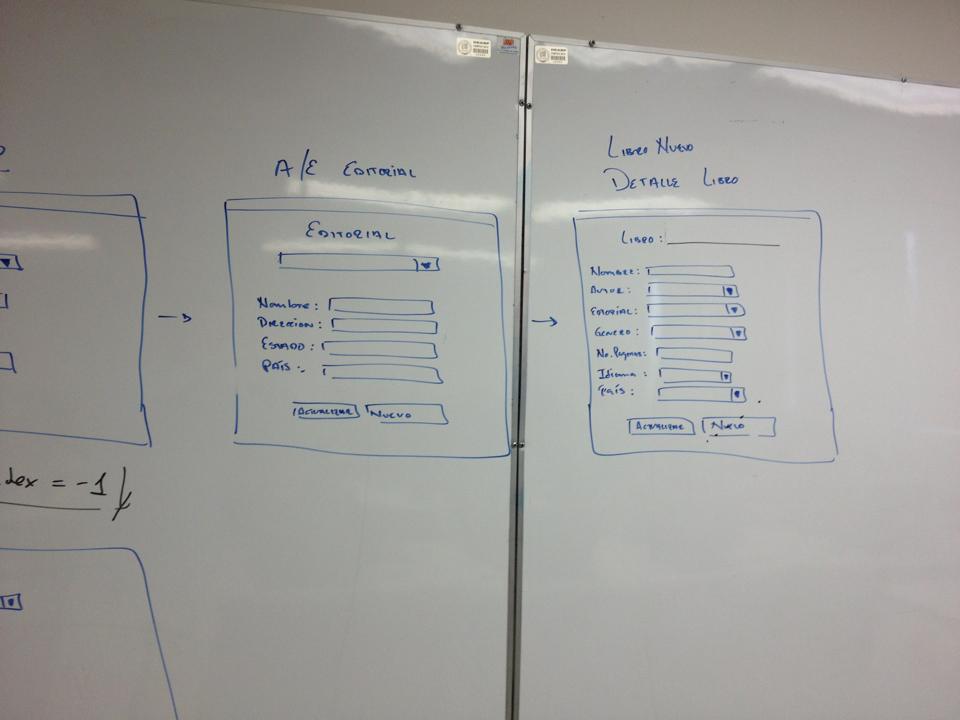 A/E EDITORIAL
EDITORIAL
Nombre:
DIRECCION:
ESTADO:
PAÍS:
ACTUALIZAR NUEVO
dex = -1
LIBRO NUEVO
DETALLE LIBRO
LIBRO:
NOMBRE:
AUTOR:
EDITORIAL:
GENERO:
No. Paginas:
Idioma:
País:
ACTUALIZAR NUEVO